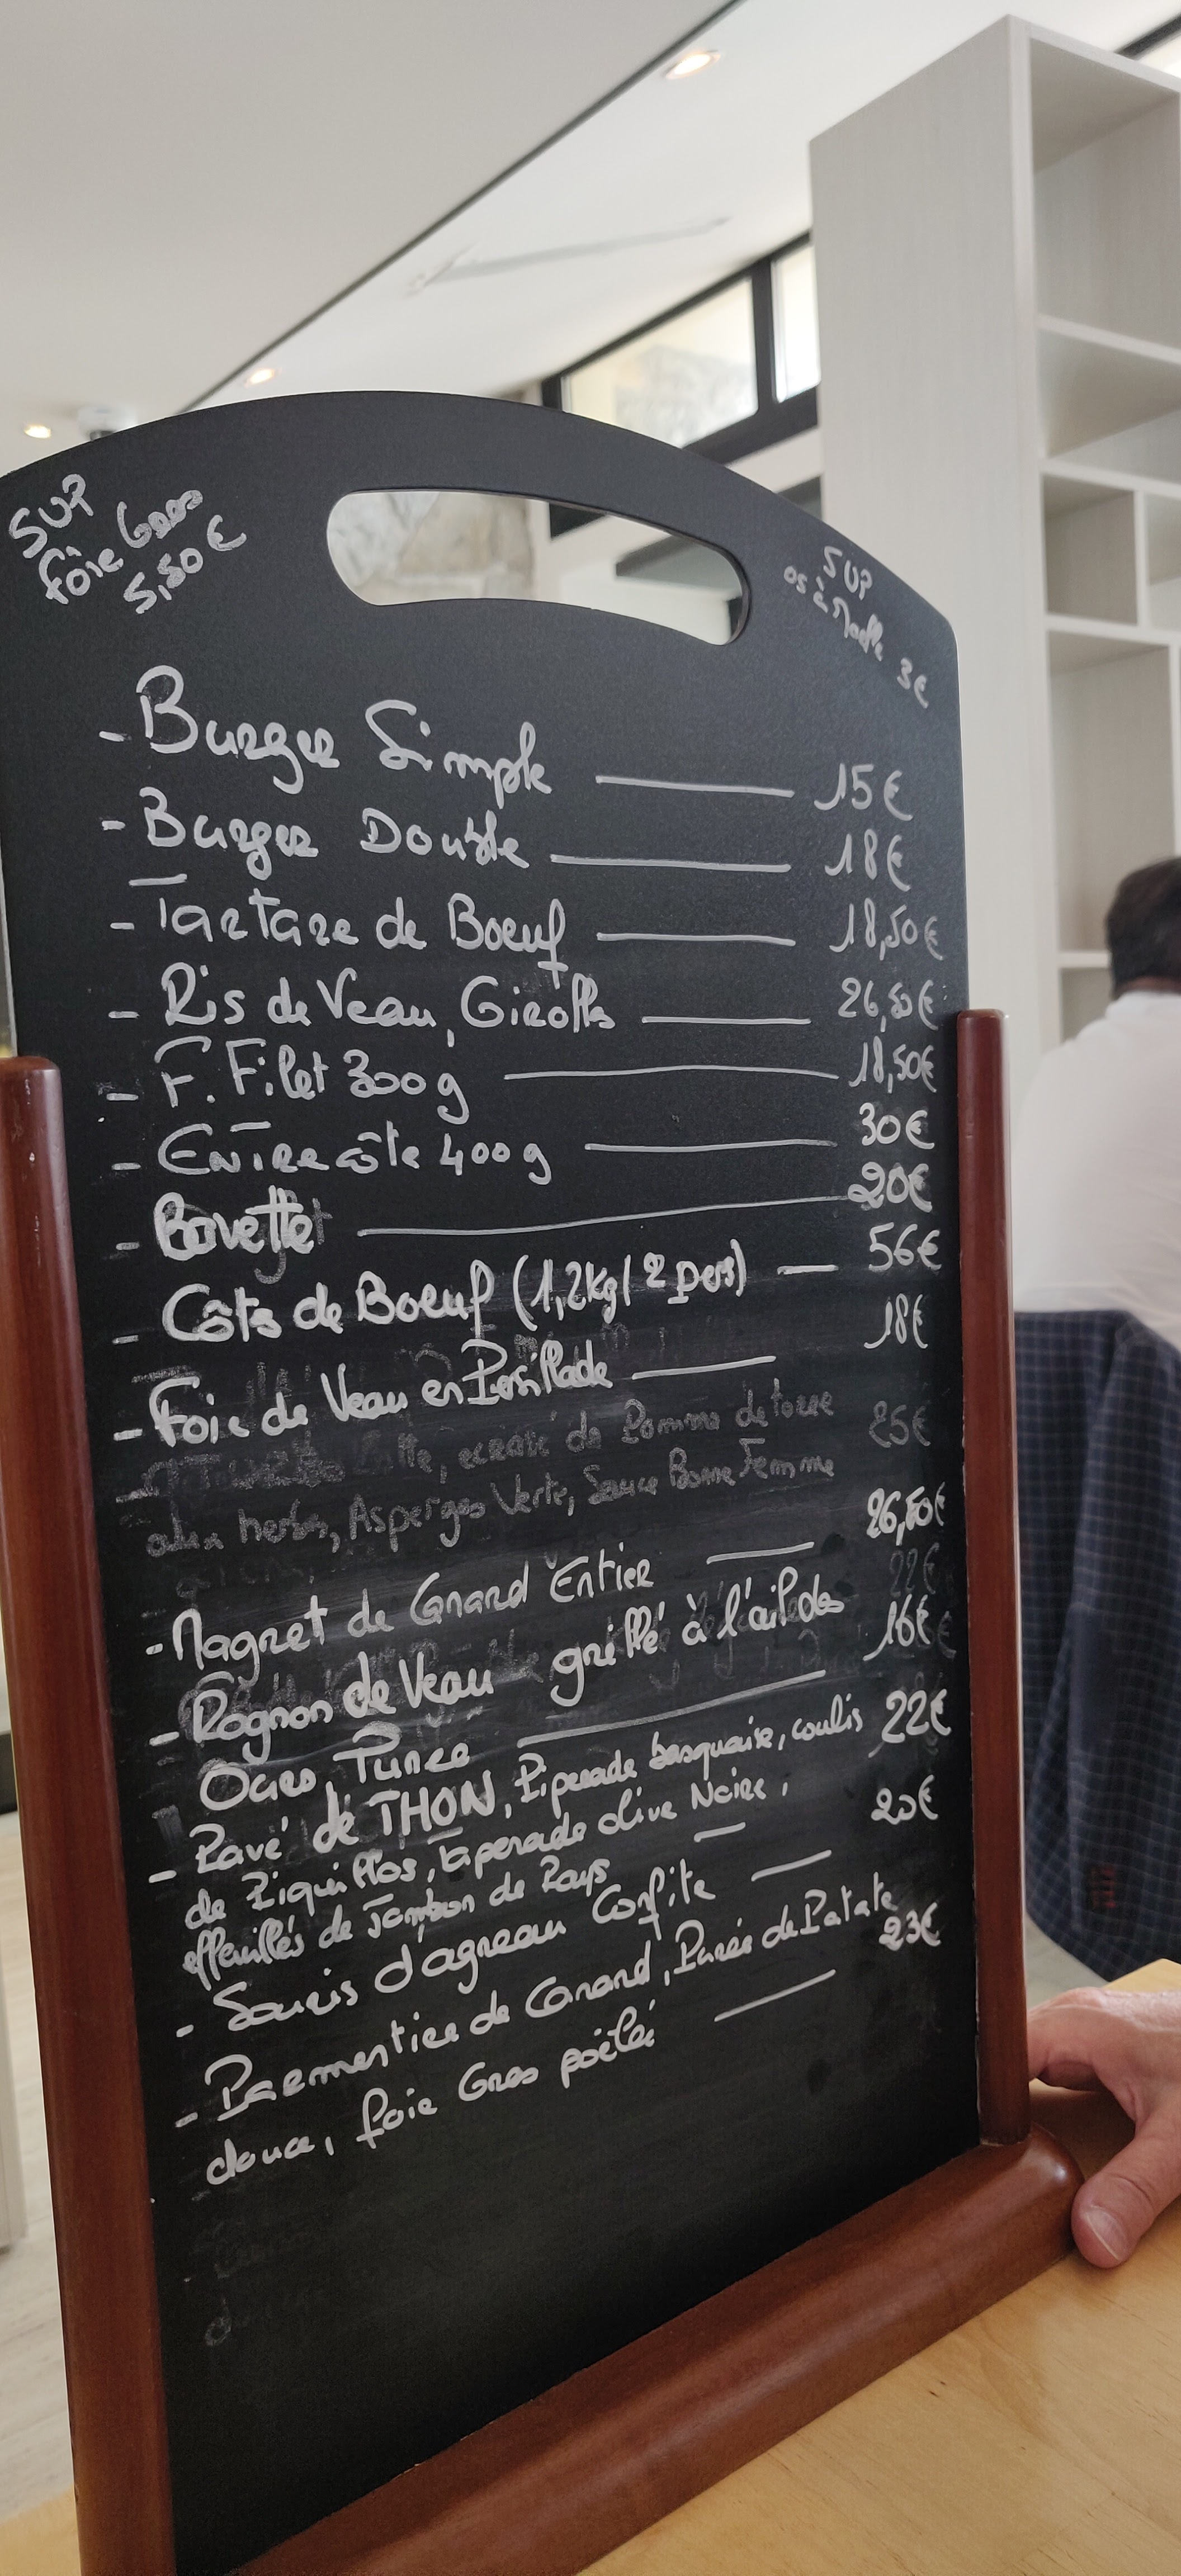 SUP
foie Gras
5,50€
SUP
os à Moelle 3€
- Burger Simple 15€
- Burger Double 18€
- Tartare de Boeuf 18,50€
- Ris de Veau, Girolles 26,50€
- F. Filet 300g 18,50€
- Entrecôte 400g 30€
- Bavette 20€
- Côte de Boeuf (1,2kg/2 pers) 56€
- Foie de Veau en Persillade 18€
écrasé de Pomme de terre 25€
aux herbes, Asperges Verte, Sauce Bonne Femme
- Magret de Canard Entier 26,50€
22€
- Rognon de Veau grillé à l'ail des 16€
Ours, Purée
- Pavé de THON, Piperade basquaise, coulis 22€
de Piquillos, tapenade olive Noire,
effeuillés de Jambon de Pays
- Souris d'agneau Confite 20€
- Parmentier de Canard, Purée de Patate 23€
douce, foie Gras poêlé